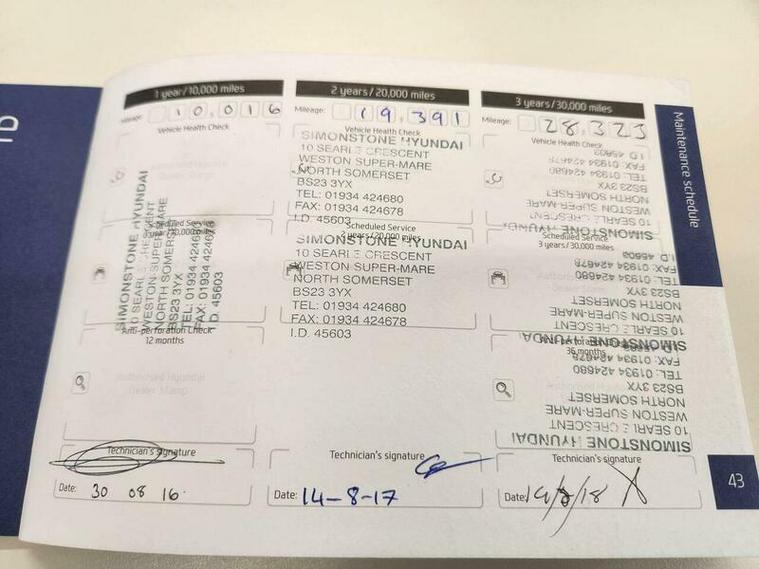 1 year/10,000 miles
Mileage: 10,016
Vehicle Health Check
SIMONSTONE HYUNDAI
10 SEARLE CRESCENT
WESTON SUPER-MARE
NORTH SOMERSET
BS23 3YX
TEL: 01934 424680
FAX: 01934 424678
I.D. 45603
Scheduled Service
1 year/10,000 miles
Anti-perforation Check
12 months
Authorised Hyundai
Dealer Stamp
Technician's signature
Date: 30 08 16
2 years/20,000 miles
Mileage: 19,391
Vehicle Health Check
SIMONSTONE HYUNDAI
10 SEARLE CRESCENT
WESTON SUPER-MARE
NORTH SOMERSET
BS23 3YX
TEL: 01934 424680
FAX: 01934 424678
I.D. 45603
Scheduled Service
2 years/20,000 miles
SIMONSTONE HYUNDAI
10 SEARLE CRESCENT
WESTON SUPER-MARE
NORTH SOMERSET
BS23 3YX
TEL: 01934 424680
FAX: 01934 424678
I.D. 45603
Technician's signature
Date: 14-8-17
3 years/30,000 miles
Mileage: 28,323
Vehicle Health Check
SIMONSTONE HYUNDAI
10 SEARLE CRESCENT
WESTON SUPER-MARE
NORTH SOMERSET
BS23 3YX
TEL: 01934 424680
FAX: 01934 424678
I.D. 45603
Scheduled Service
3 years/30,000 miles
SIMONSTONE HYUNDAI
10 SEARLE CRESCENT
WESTON SUPER-MARE
NORTH SOMERSET
BS23 3YX
TEL: 01934 424680
FAX: 01934 424678
I.D. 45603
36 months
SIMONSTONE HYUNDAI
10 SEARLE CRESCENT
WESTON SUPER-MARE
NORTH SOMERSET
BS23 3YX
TEL: 01934 424680
FAX: 01934 424678
Technician's signature
Date:
Maintenance schedule
43